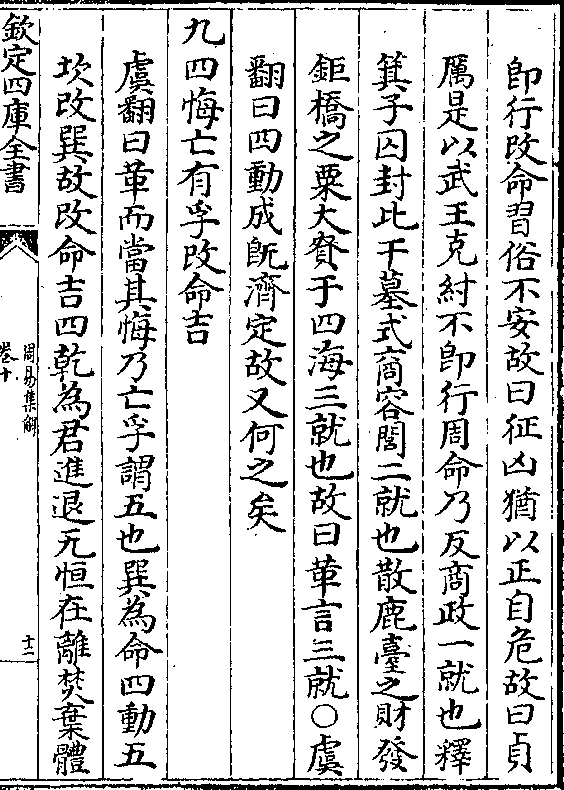 即行改命習俗不安故曰征凶猶以正自危故曰貞
厲是以武王克紂不即行周命乃反商政一就也釋
箕子囚封比干墓式商容閭二就也散鹿臺之財發
鉅橋之粟大賚于四海三就也故曰革言三就○虞
翻曰四動成旣濟定故又何之矣
九四悔亡有孚改命吉
虞翻曰革而當其悔乃亡孚謂五也巽為命四動五
坎改巽故改命吉四乾為君進退无恒在離焚棄體
欽定四庫全書
周易集解
卷十
十二